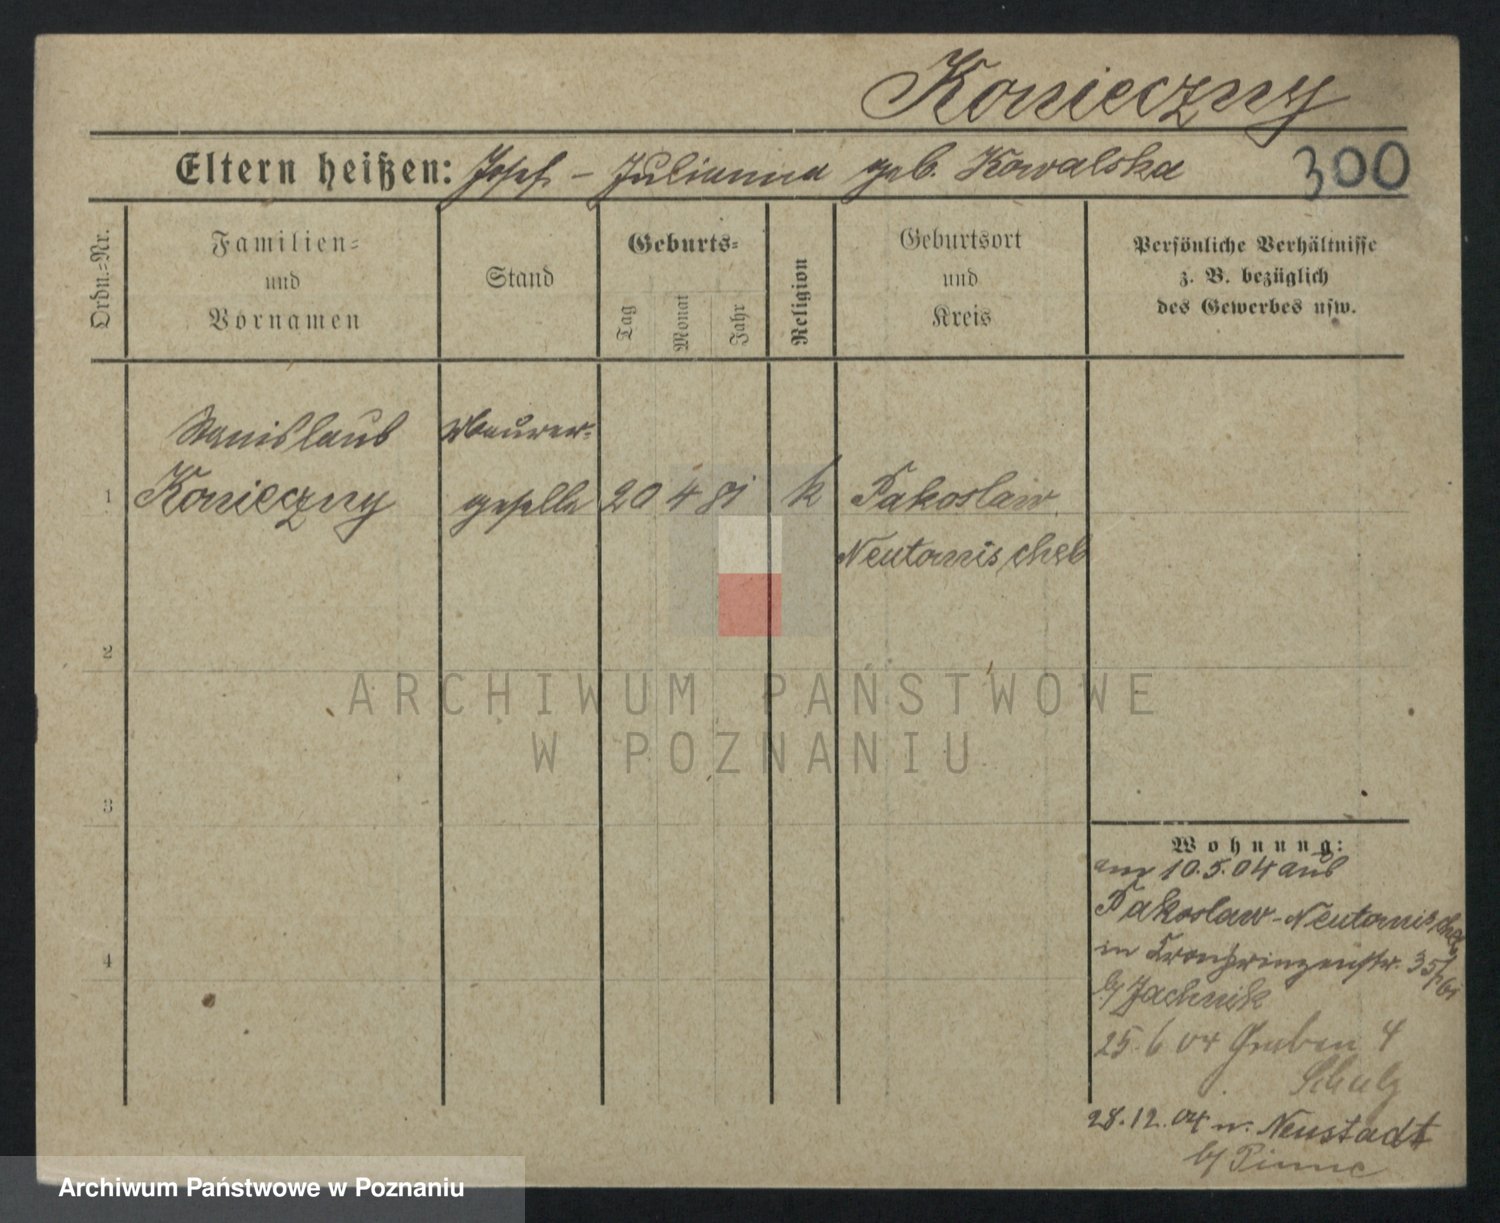 Konieczny
Eltern heißen: Josef – Julianna geb. Kowalska 300
Ordn.=Nr.
Familien=
und
Vornamen
Stand
Geburts=
Tag
Monat
Jahr
Religion
Geburtsort
und
Kreis
Persönliche Verhältnisse
z. B. bezüglich
des Gewerbes usw.
Stanislaus Maurer=
1 Konieczny geselle 20 4 81 k Pakoslaw
Neutomischel
2
ARCHIWUM PAŃSTWOWE
W POZNANIU
3
Wohnung:
am 10.5.04 aus
Pakoslaw-Neutomischel
in Kronprinzenstr. 35/
b/ Jachnik
25.6 04 Graben 4
Schulz
28.12.04 n. Neustadt
b/ Pinne
4
Archiwum Państwowe w Poznaniu